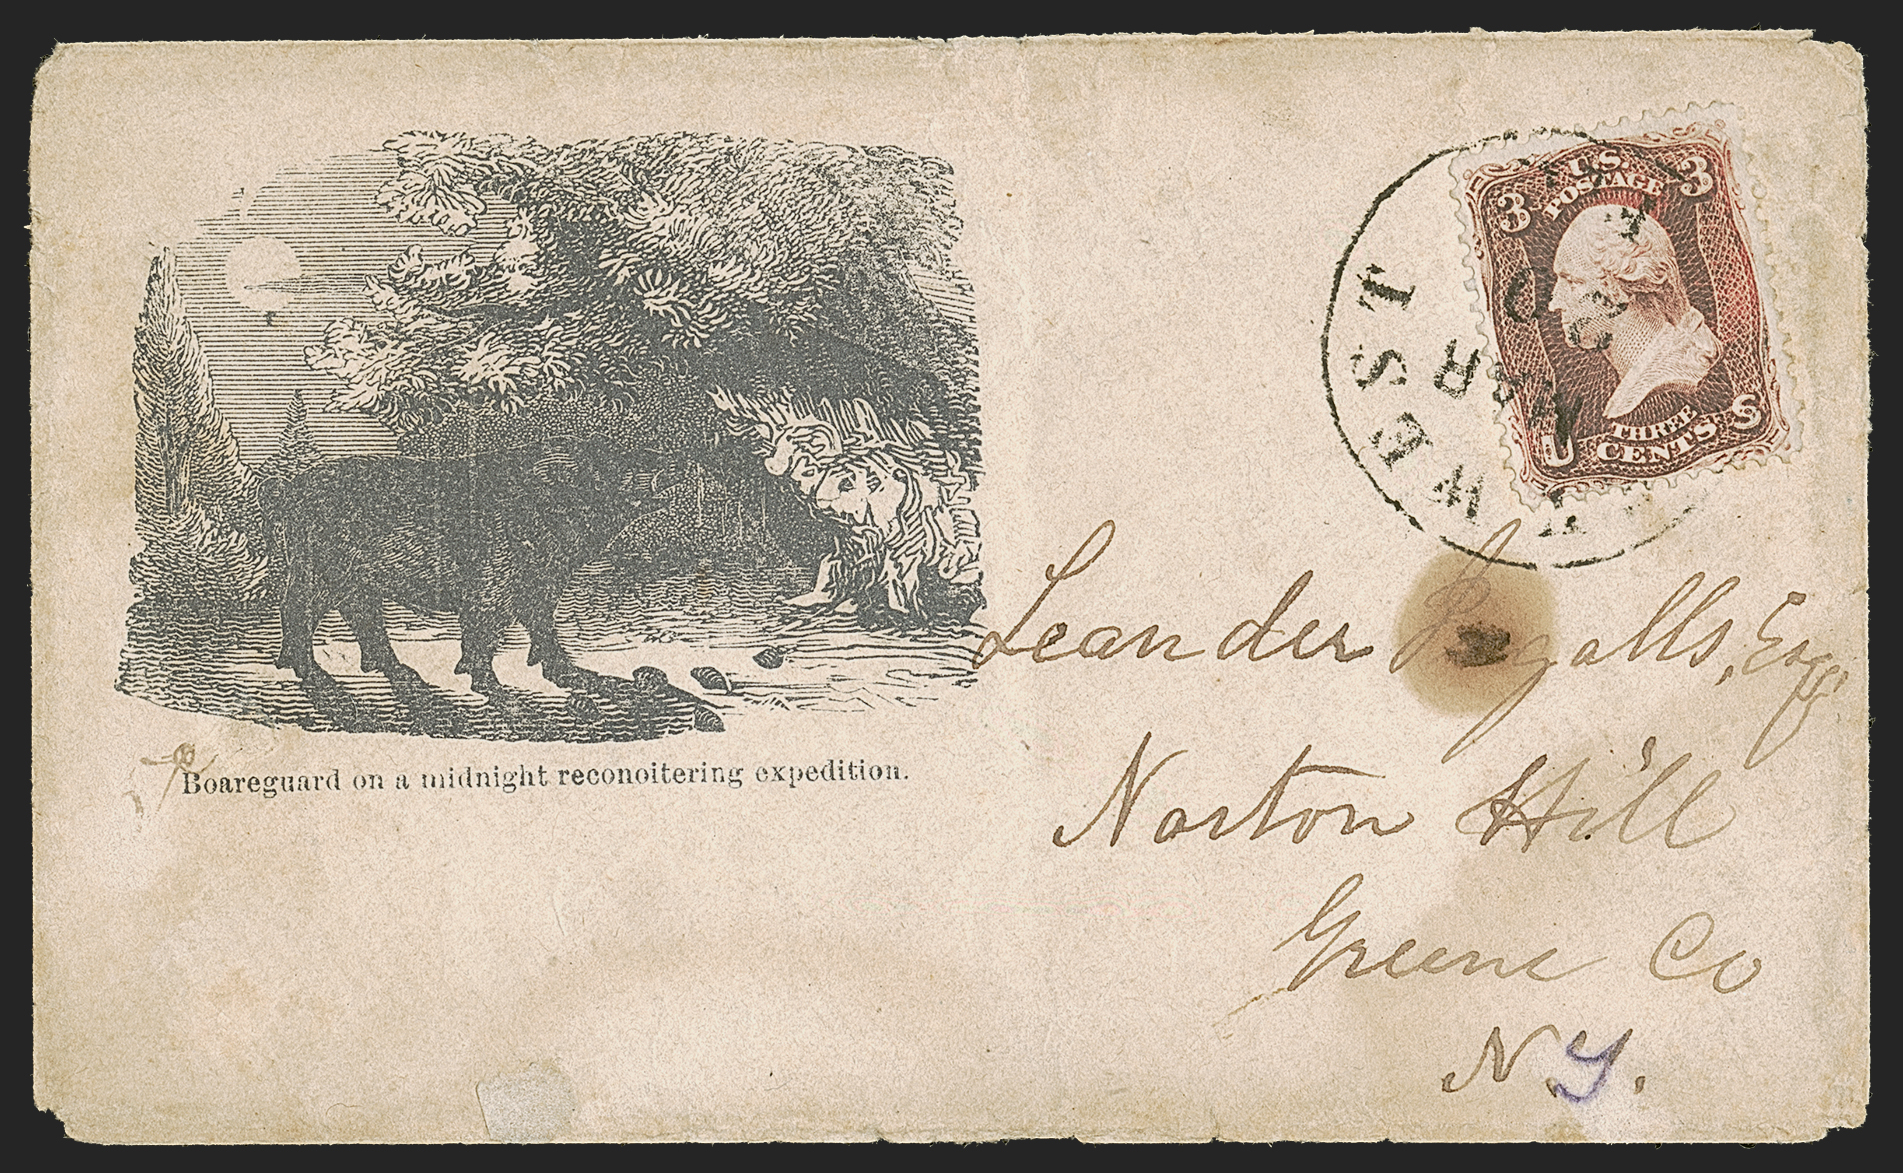 U.S.
POSTAGE
3 3
THREE
CENTS
U S
WEST
MAR
Boareguard on a midnight reconoitering expedition.
Leander Ingalls, Esq.
Norton Hill
Greene Co
N.Y.